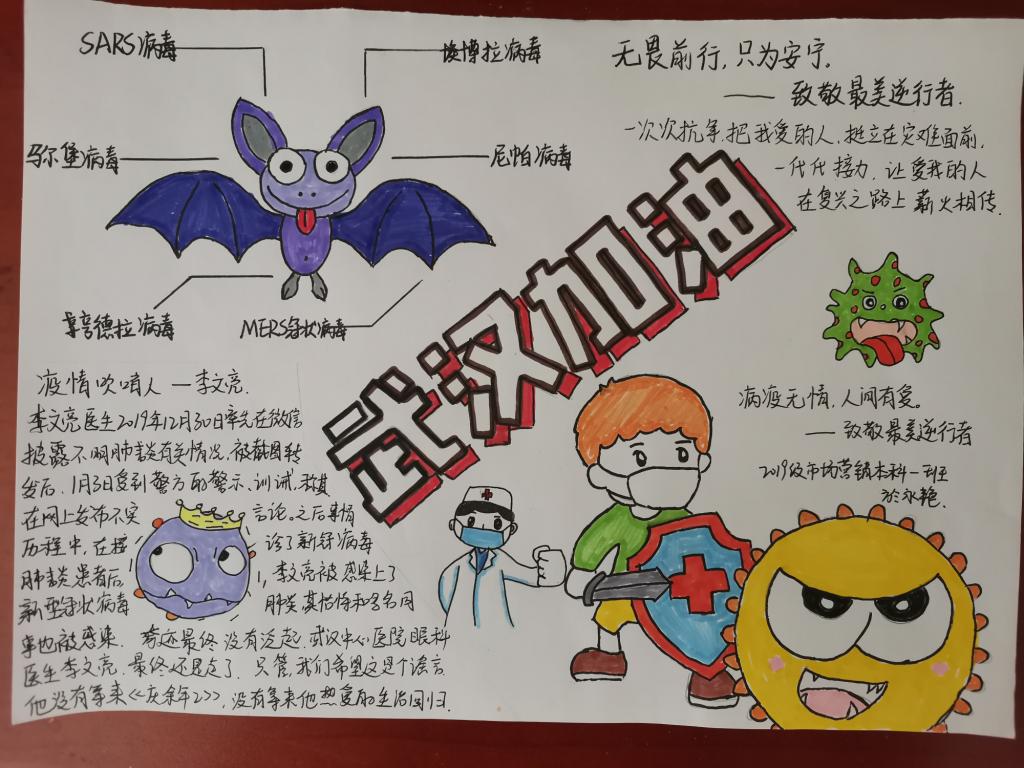 SARS病毒
埃博拉病毒
马尔堡病毒
尼帕病毒
亨德拉病毒
MERS冠状病毒
无畏前行，只为安宁。
—— 致敬最美逆行者.
一次次抗争,把我爱的人,挺立在灾难面前,
一代代接力，让爱我的人
在复兴之路上薪火相传.
武汉加油
疫情吹哨人 —李文亮.
李文亮医生2019年12月30日率先在微信
披露不明肺炎有关情况,被截图转
发后,1月3日受到警方的警示、训诫,
在网上发布不实 言论。之后事情
历程中,在接 诊了新冠病毒
肺炎患者后 ,李文亮被感染上了
新型冠状病毒 肺炎,其他
事也被感染. 奇迹最终没有泛起,武汉中心医院眼科
医生李文亮,最终还是走了.只管,我们希望这是个谎言.
他没有等来《庆余年2》,没有等来他热爱的生活回归.
病疫无情,人间有爱。
—— 致敬最美逆行者
2019级市场营销本科一班